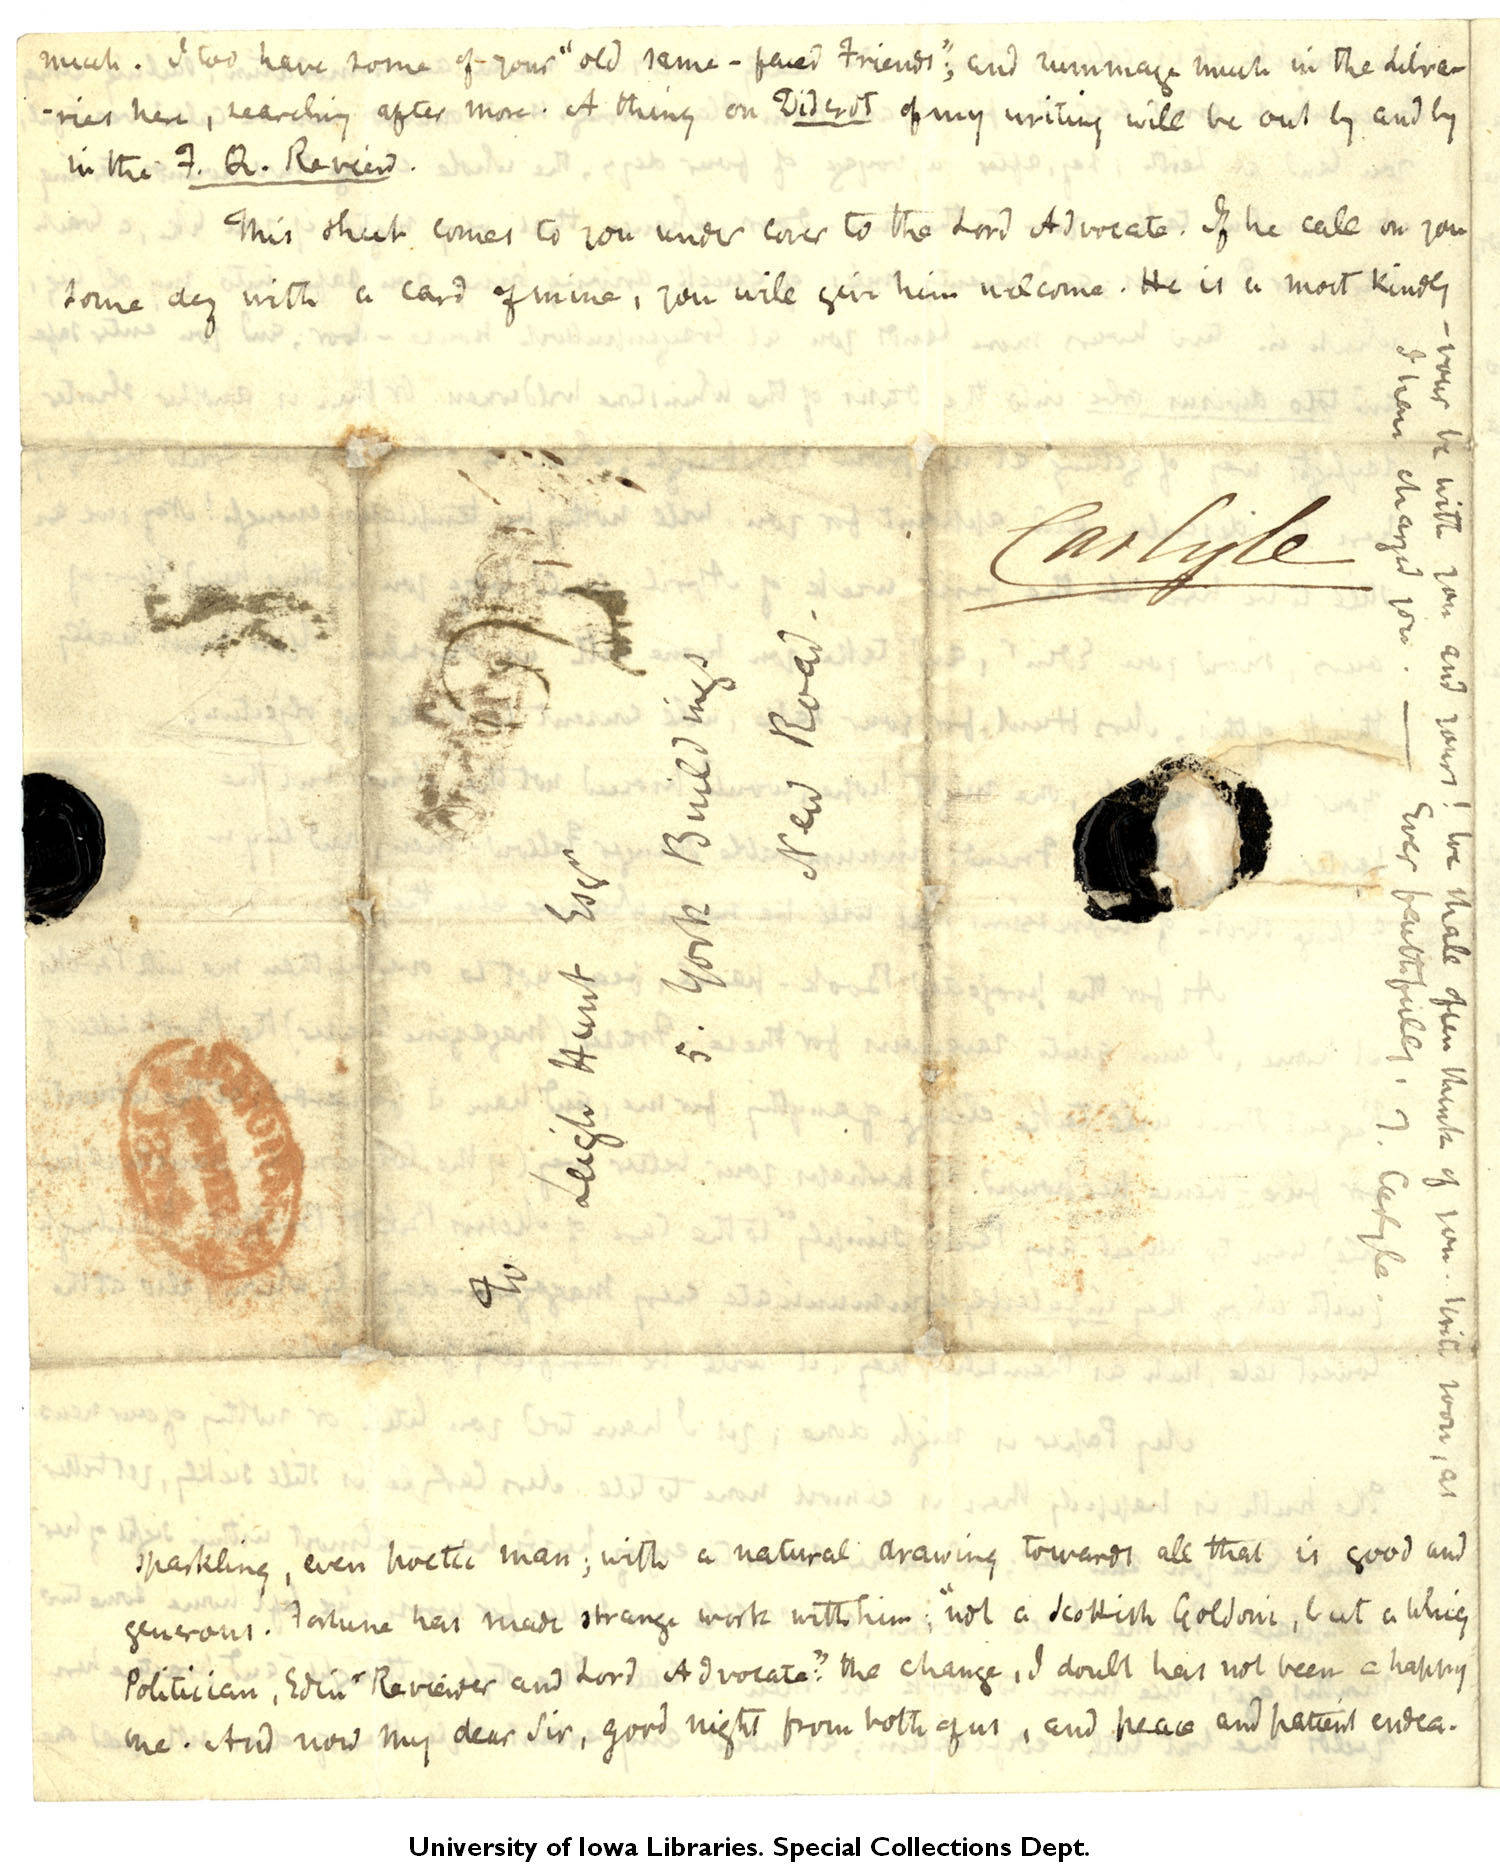 much. I too have some of your "old same-faced Friends"; and rummage much in the Libra-
-ries here, searching after more. A thing on Diderot of my writing will be out by and by
in the F. Q. Review.
This sheet comes to you under cover to the Lord Advocate. If he call on you
some day with a card of mine, you will give him welcome. He is a most kindly
sparkling, even poetic man; with a natural drawing towards all that is good and
generous. Fortune has made strange work with him: "not a Scottish Goldoni, but a Whig
Politician, Edinr Reviewer and Lord Advocate". The change, I doubt has not been a happy
one. And now my dear Sir, good night from both of us, and peace and patient endea-
-vour be with you and yours! We shall often think of you. Write soon, as
I have charged you. — Ever faithfully, T. Carlyle.
Carlyle
To
Leigh Hunt Esqr
5. York Buildings
New Road.
University of Iowa Libraries. Special Collections Dept.